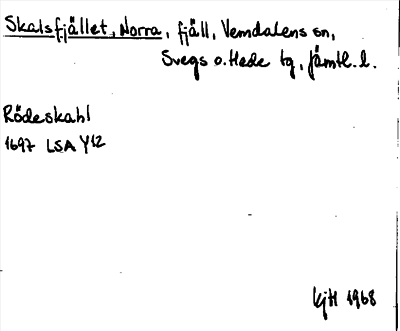 Skalsfjället, Norra, fjäll, Vemdalens sn,
Svegs o. Hede tg, Jämtl. l.
Rödeskahl
1697 LSA Y12
KjH 1968